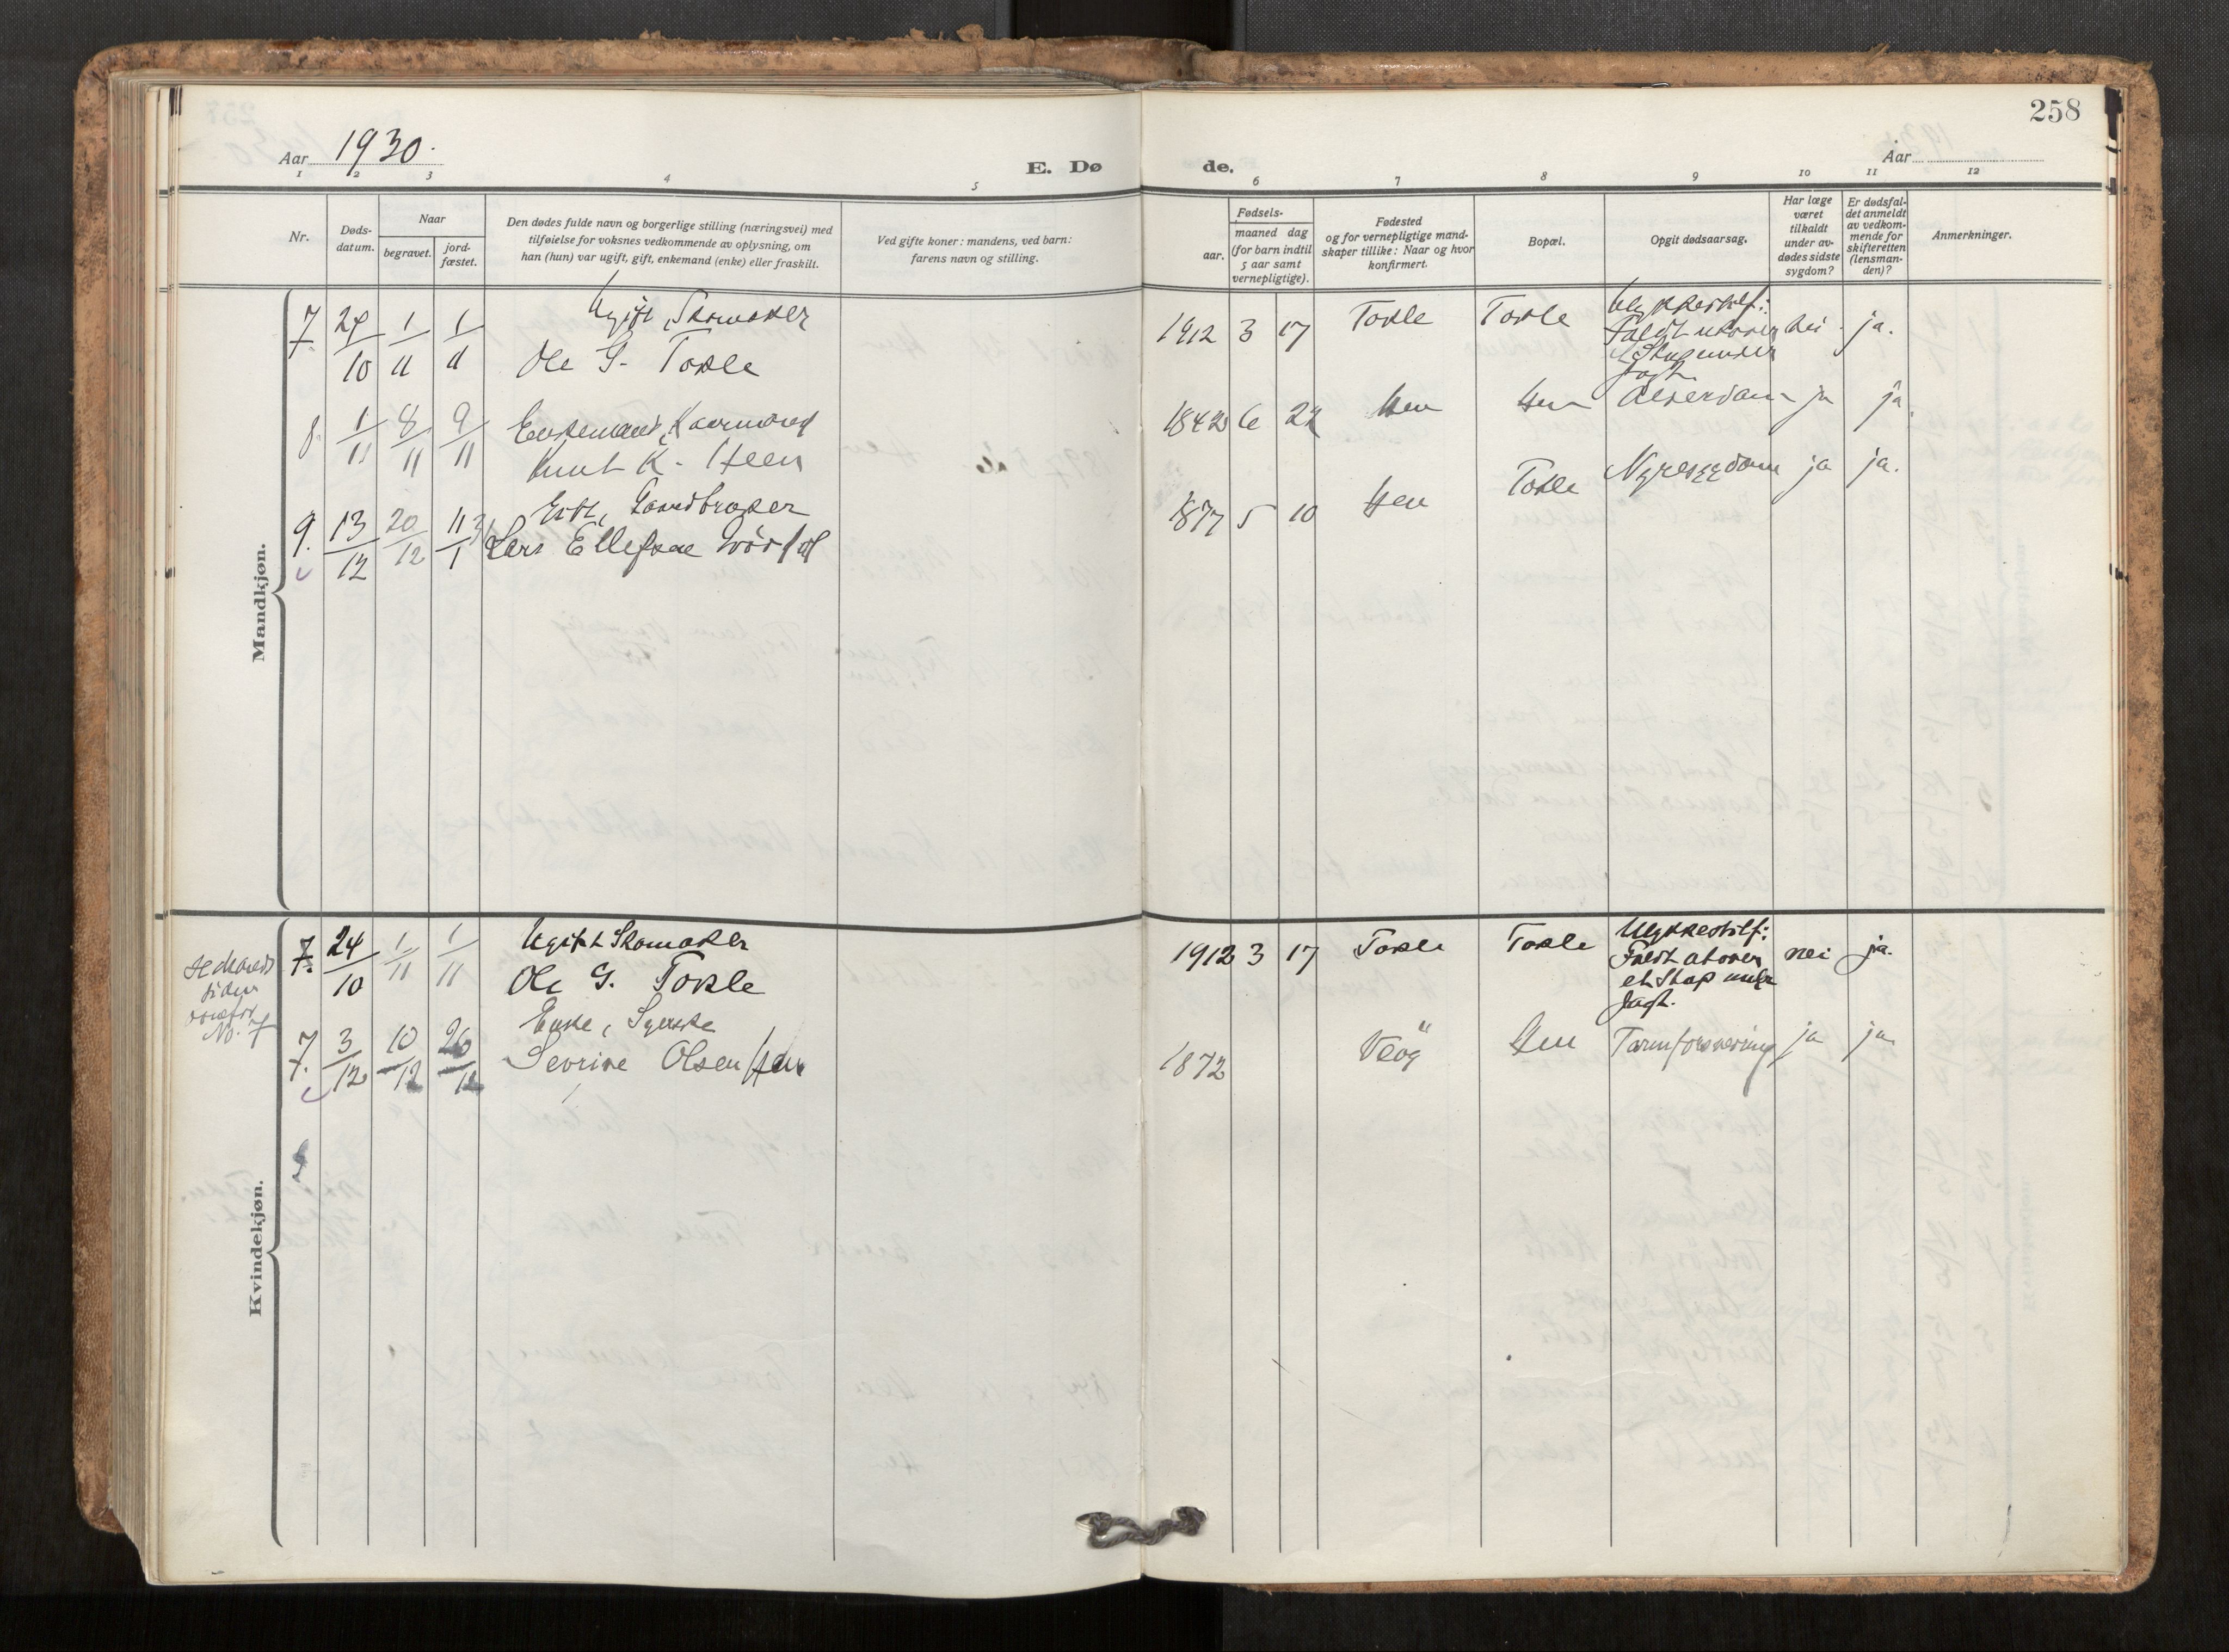 258
Aar 1930.
E. Dø de.
Aar
1 2 3 4 5 6 7 8 9 10 11 12
Nr.
Døds-
datum.
Naar
begravet.
jord-
fæstet.
Den dødes fulde navn og borgerlige stilling (næringsvei) med
tilføielse for voksnes vedkommende av oplysning, om
han (hun) var ugift, gift, enkemand (enke) eller fraskilt.
Ved gifte koner: mandens, ved barn:
farens navn og stilling.
Fødsels-
aar.
maaned dag
(for barn indtil
5 aar samt
vernepligtige).
Fødested
og for vernepligtige mand-
skaper tillike: Naar og hvor
konfirmert.
Bopæl.
Opgit dødsaarsag.
Har læge
været
tilkaldt
under av-
dødes sidste
sygdom?
Er dødsfal-
det anmeldt
av vedkom-
mende for
skifteretten
(lensman-
den)?
Anmerkninger.
Mandkjøn.
7. 24/10 1/11 1/11 Ugift, Skomaker
Ole G. Tokle
1912 3 17 Tokle Tokle Ulykkestilf:
Faldt utover
et Stup under
Jagt.
nei ja.
8. 1/11 8/11 9/11 Enkemand, Kaarmand
Knut K. Heen
1842 6 22 Hen Hen Alderdom ja ja.
9. 13/12 20/12 11/1 31 Gift, Gaardbruker
Lars Ellefsen
1877 5 10 Hen Tokle Nyresygdom ja ja.
Kvindekjøn.
Se Mands
siden
ovenfor
No. 7
7. 24/10 1/11 1/11 Ugift Skomaker
Ole G. Tokle
1912 3 17 Tokle Tokle Ulykkestilf:
Faldt utover
et Stup under
Jagt.
nei ja.
7. 3/12 10/12 26/12 Enke, Syerske
Sevrine Olsen Hen
1872 Veøy Hen ja ja